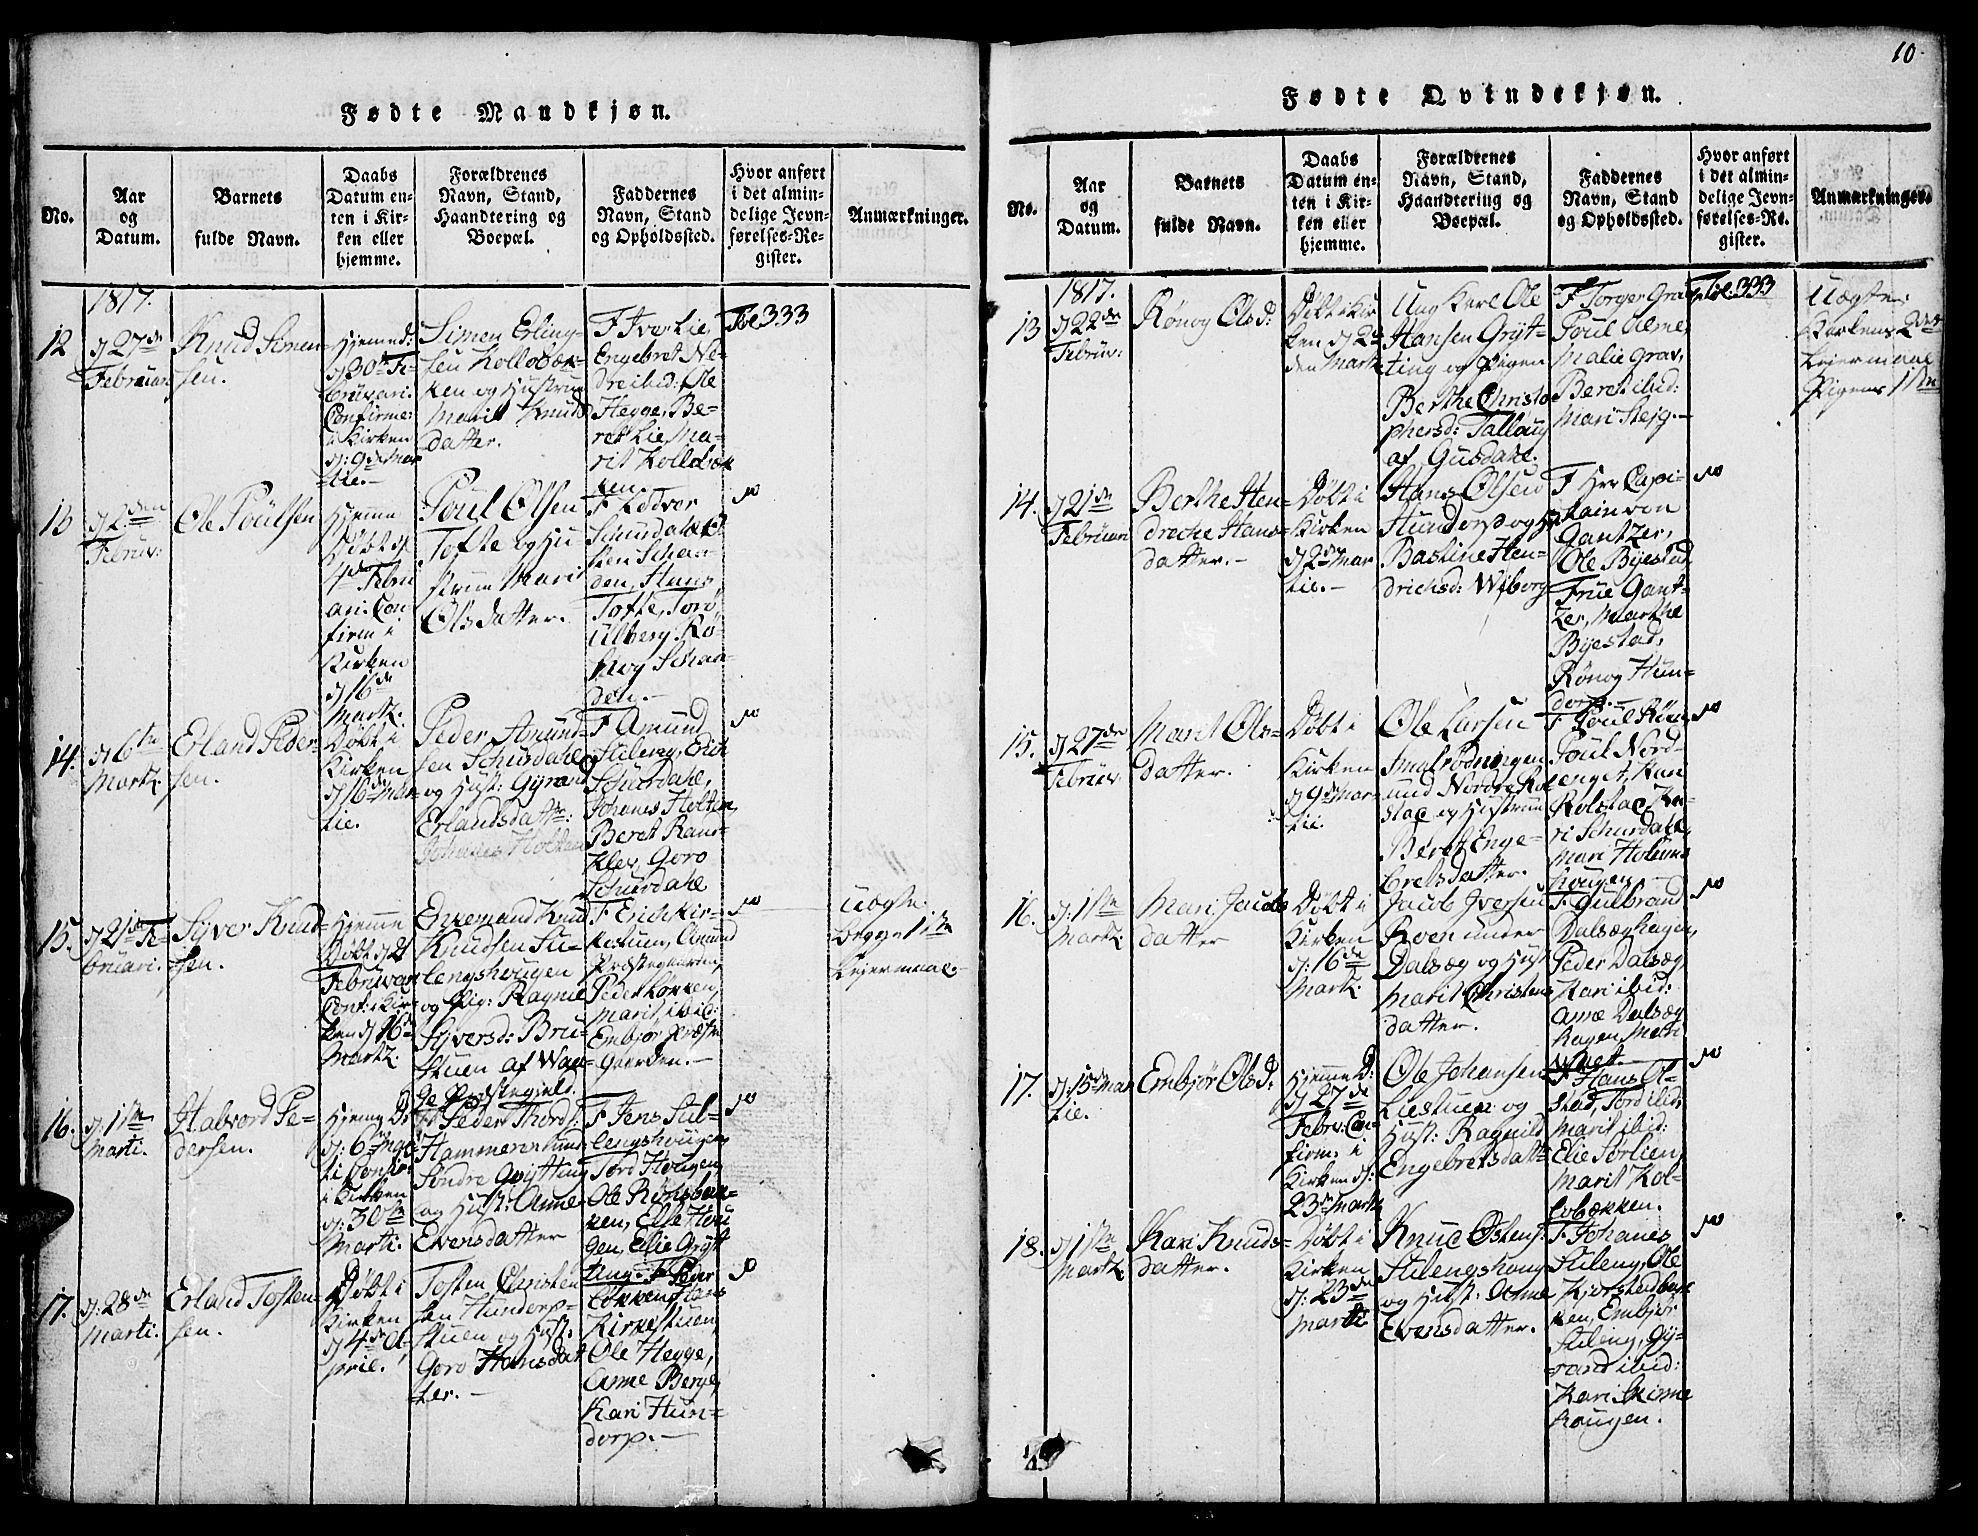 Fødte Mandkjøn.
No.
Aar
og
Datum.
Barnets
fulde Navn.
Daabs
Datum en-
ten i Kir-
ken eller
hjemme.
Forældrenes
Navn, Stand,
Haandtering og
Boepæl.
Faddernes
Navn, Stand
og Opholdssted.
Hvor anført
i det almin-
delige Jevn-
førelses-Re-
gister.
Anmærkninger.
1817.
12
d 27de
Februar
Knud Simen-
sen.
Hjemmed:
Confirme:
i Kirken
d: 9de Mar
tie.-
Simen Erling-
sen Kollobæk-
ken og Hustrue
Marit Knuds
datter.
F Iver Lie
Engebret Ne-
dre ibid: Ole
Hegge, Be-
ret Lie, Ma-
rit Kollobæk
ken.
Fol 333
13
d 2den
Februv:
Ole Poulsen
Hjemme
Døbt d
4de Febru
ari. Con
firm i
Kirken
d 16de
Martz.
Poul Olsen
Tofte og Hu
strue Marit
Olsdatter.
den, Hans
Tofte, Tore
Ulberg, Rø-
nog Schan-
den.-
14.
d 6te
Martz
Erland Peder-
sen.
Døbt i
Kirken
d 16de Mar-
tie.
Peder Amund-
sen Schurdahl
og Hust: Gyrand
Erlandsdattr:
Johannes Holten
F Amund
Stileng, Erich
Schurdahl,
Johanes Holten,
Beret Rans-
klev, Goro
Schurdahl
15.
d 21de Fe-
bruari.
Syver Knud-
sen.
Hjemme
Døbt d 21
Februvar
Conf: i Kir-
ken d 16de
Martz.
Knudsen Sti-
lengshougen
og Pig: Ragnild
Syversd: Bru-
stuen af Waa-
ge Præstegield.
F Erich Kir-
kestuen, Amund
Præstegaarden,
Peder Løkken,
Marit, ibid:
Embjør Præste
Gaarden.-
Uægte.
Begges 1ste
Leiermaal.
16.
d: 1ste
Marti.
Halvord Pe-
dersen.
Hjeme D:
d: 6te Mar
ti Confir:
i Kirken
d: 30te
Marti.
Peder Thords:
Hammeren under
Søndre Grytting
og Hust: Anne
Evensdatter
F Jens Sti-
lengshougen
Tord Hougen,
Ole Rønsbæk-
ken, Elie Hou
gen, Elie Gryt
ting.
17.
d: 28de
Marti.
Erland Tosten-
sen.
Døbt i
Kirken
d 4de A-
pril.
Tosten Christen
sen Hundorp-
stuen og Hust:
Goro Hansdat
ter.-
F Peder
Løkken, Hans
Kirkestuen,
Ole Hegge,
Anne Berge,
Kari Hun-
dorp.-
10.
Fødte Qvindekjøn.
No.
Aar
og
Datum.
Barnets
fulde Navn.
Daabs
Datum en-
ten i Kir-
ken eller
hjemme.
Forældrenes
Navn, Stand,
Haandtering og
Boepæl.
Faddernes
Navn, Stand
og Opholdssted.
Hvor anført
i det almin-
delige Jevn-
førelses-Re-
gister.
Anmærkninger.
1817.
13
d 22de
Februv:
Rønog Olsd:
Døbt i Kir
ken d 2
den Martz
Ung Karl Ole
Hansen Gryt-
ting og Pigen
Berthe Christo
phersd: Tallaug
af Gusdahl.
F Torger Grav
Poul Olme,
Malie Grav,
Beret ibid:
Mari Steig.-
Fol: 333
Uægte:
Karlens 2det
Leiermaal
Pigens 1ste
14.
d 21de
Februari
Berthe Hen-
dreche Hans
datter.-
Døbt i
Kirken
d 2den Mar
tie.-
Hans Olsen
Hundorp og H:
Bastine Hen-
drichsd: Wiborg
F Herr Capi-
tain von
Gantzer,
Ole Byestad,
Frue Gant-
zer, Marthe
Byestad,
Rønog Hun-
dorp.-
15.
d 27de
Februv
Marit Ols-
datter.
Døbt i
Kirken
d 9de Mar-
tii.
Ole Larsen
Smalrødningen
und Nordre Rol
stad og Hustrue
Beret Enge-
bretsdatter.
Poul Nord-
enget,
Rolstad, Ka-
ri Schurdahl,
Mari Holems
hougen
16.
d: 1ste
Martz
Mari Jacobs
datter
Døbt i
Kirken
d: 16de
Martz
Jacob Iversen
Roen under
Dalsæg og Hust
Marit Christens
datter.
F Gulbrand
Dalsæghagen,
Peder Dalsæg,
Kari ibid:
Anne Dalsæg
hagen, Mari
17.
d: 15de Mar
tie.
Embjør Olsd:
Hjemme D:
d 27de
Febrv: Con
firm: i
Kirken d:
23de Martz
Ole Johansen
Liestuen og
Hust: Ragnild
Engebretsdattr
F Hans Ol-
stad, Tord ibid,
Marit ibid:
Elie Sørlien,
Marit Kol-
lobækken.
18.
d 1ste
Martz
Kari Knuds-
datter.
Døbt i
Kirken
d: 23de
Marti
Knud Østens:
Stilengshoug
og Hust: Anne
Evensdatter.
F Johanes
Stileng, Ole
Kjorstadbæk
ken, Embjør
Stileng, Gy-
rand ibid:
Kari Skinne
hougen.